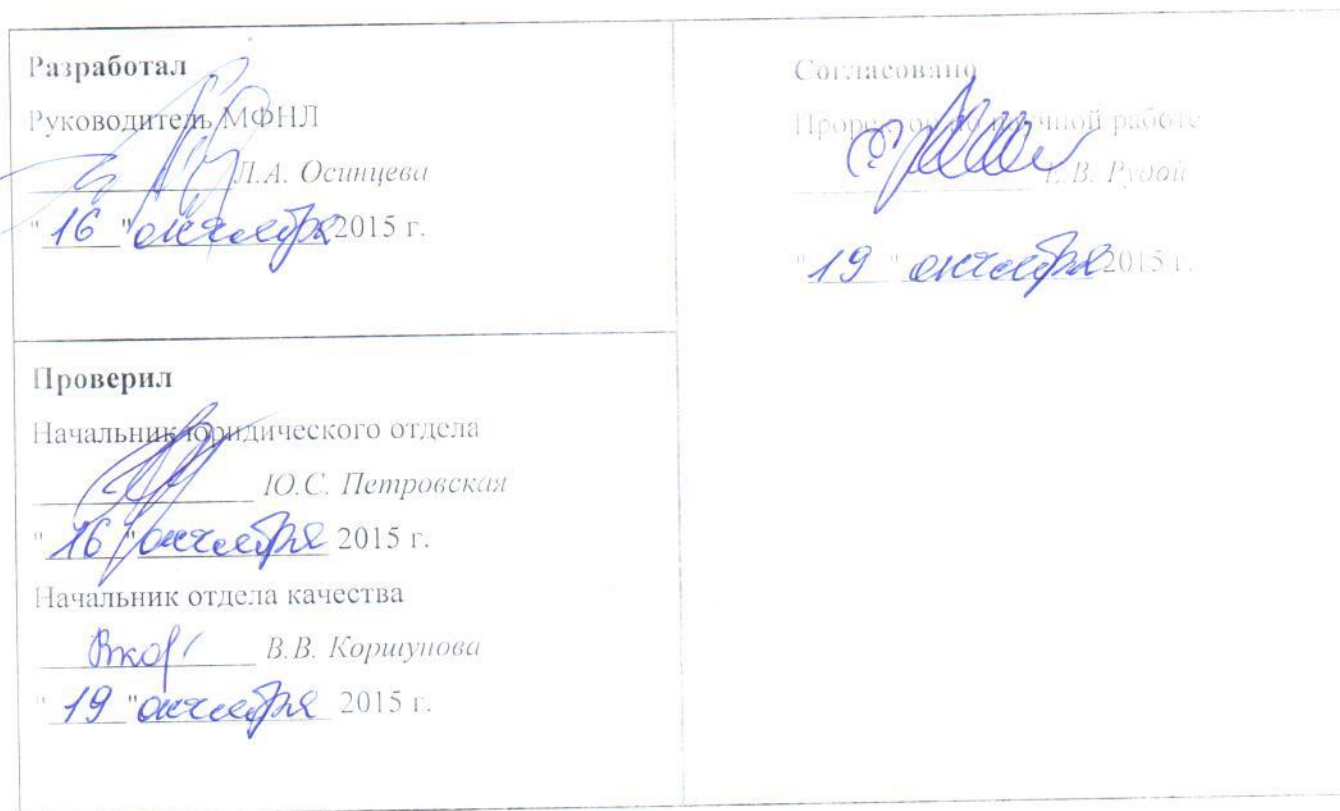 Разработал
Руководитель МФНЛ
Л.А. Осинцева
"16" октября 2015 г.
Проверил
Начальник юридического отдела
Ю.С. Петровская
"16" октября 2015 г.
Начальник отдела качества
В.В. Коршунова
"19" октября 2015 г.
Согласовано
Проректор по научной работе
Е.В. Рудой
"19" октября 2015 г.